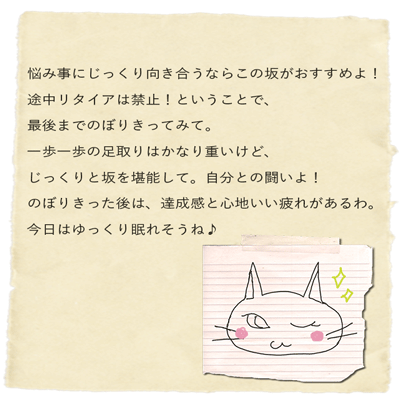 悩み事にじっくり向き合うならこの坂がおすすめよ！
途中リタイアは禁止！ということで、
最後までのぼりきってみて。
一歩一歩の足取りはかなり重いけど、
じっくりと坂を堪能して。自分との闘いよ！
のぼりきった後は、達成感と心地いい疲れがあるわ。
今日はゆっくり眠れそうね♪